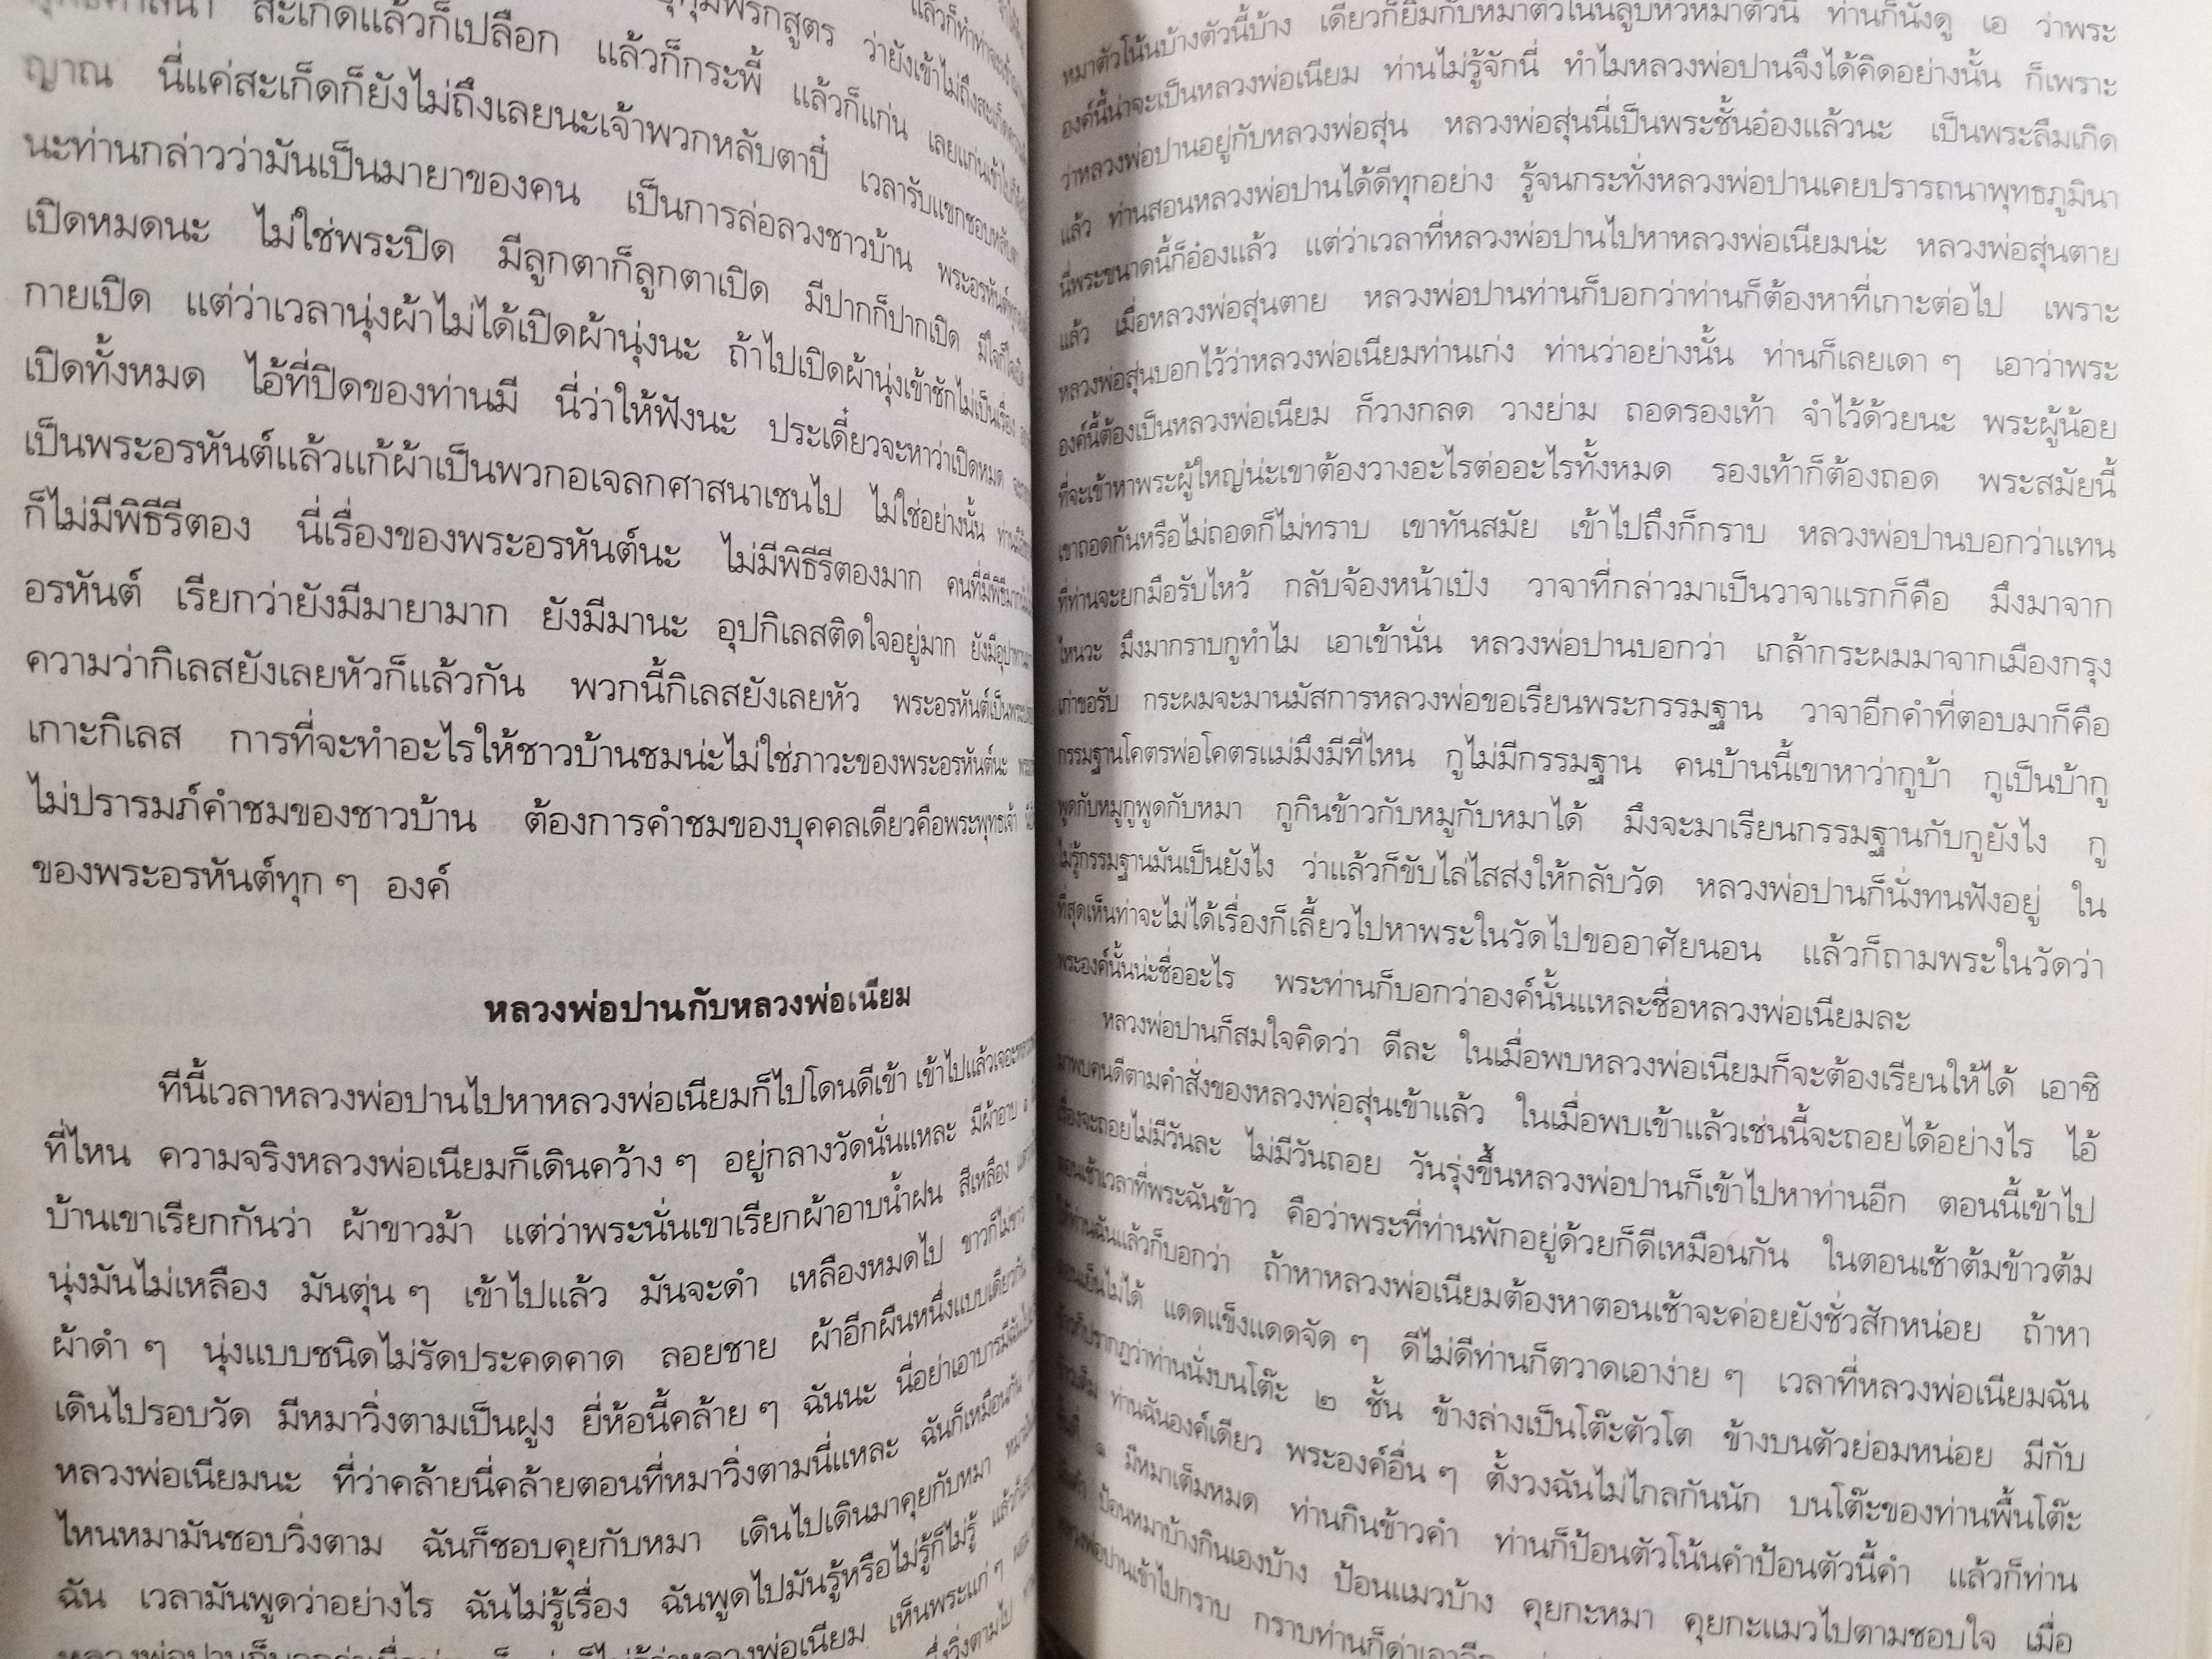 สะเกิดแล้วก็เปลือก แล้วก็กระพี้ แล้วก็แก่น
ญาณ นี่แค่สะเก็ดก็ยังไม่ถึงเลยนะเจ้าพวกหลับตาปี๋ เวลารับแขกชอบหลับตา
นะท่านกล่าวว่ามันเป็นมายาของคน เป็นการล่อลวงชาวบ้าน
เปิดหมดนะ ไม่ใช่พระปิด มีลูกตาก็ลูกตาเปิด มีปากก็ปากเปิด
กายเปิด แต่ว่าเวลานุ่งผ้าไม่ได้เปิดผ้านุ่งนะ ถ้าไปเปิดผ้านุ่งเข้าชักไม่เป็นเรื่อง
เปิดทั้งหมด ไอ้ที่ปิดของท่านมี นี่ว่าให้ฟังนะ ประเดี๋ยวจะหาว่าเปิดหมด
เป็นพระอรหันต์แล้วแก้ผ้าเป็นพวกอเจลกศาสนาเชนไป ไม่ใช่อย่างนั้น
ก็ไม่มีพิธีรีตอง นี่เรื่องของพระอรหันต์นะ ไม่มีพิธีรีตองมาก
อรหันต์ เรียกว่ายังมีมายามาก ยังมีมานะ อุปกิเลสติดใจอยู่มาก
ความว่ากิเลสยังเลยหัวก็แล้วกัน พวกนี้กิเลสยังเลยหัว
เกาะกิเลส การที่จะทำอะไรให้ชาวบ้านชมน่ะไม่ใช่ภาวะของพระอรหันต์นะ
ไม่ปรารมภ์คำชมของชาวบ้าน ต้องการคำชมของบุคคลเดียวคือพระพุทธเจ้า
ของพระอรหันต์ทุก ๆ องค์
หลวงพ่อปานกับหลวงพ่อเนียม
ทีนี้เวลาหลวงพ่อปานไปหาหลวงพ่อเนียมก็ไปโดนดีเข้า เข้าไปแล้วเจอะ
ที่ไหน ความจริงหลวงพ่อเนียมก็เดินคว้าง ๆ อยู่กลางวัดนั่นแหละ มีผ้าอาบ
บ้านเขาเรียกกันว่า ผ้าขาวม้า แต่ว่าพระนั่นเขาเรียกผ้าอาบน้ำฝน สีเหลือง
นุ่งมันไม่เหลือง มันตุ่น ๆ เข้าไปแล้ว มันจะดำ เหลืองหมดไป ขาวก็ไม่ขาว
ผ้าดำ ๆ นุ่งแบบชนิดไม่รัดประคดคาด ลอยชาย ผ้าอีกผืนหนึ่งแบบเดียวกัน
เดินไปรอบวัด มีหมาวิ่งตามเป็นฝูง ยี่ห้อนี้คล้าย ๆ ฉันนะ นี่อย่าเอาบารมีฉัน
หลวงพ่อเนียมนะ ที่ว่าคล้ายนี่คล้ายตอนที่หมาวิ่งตามนี่แหละ ฉันก็เหมือนกัน
ไหนหมามันชอบวิ่งตาม ฉันก็ชอบคุยกับหมา เดินไปเดินมาคุยกับหมา
ฉัน เวลามันพูดว่าอย่างไร ฉันไม่รู้เรื่อง ฉันพูดไปมันรู้หรือไม่รู้ก็ไม่รู้
หลวงพ่อเนียม เห็นพระแก่ ๆ
หมาตัวโน้นบ้างตัวนี้บ้าง เดี๋ยวก็ยิ้มกับหมาตัวโน้นลูบหัวหมาตัวนี้ ท่านก็นั่งดู เอ ว่าพระ
องค์นี้น่าจะเป็นหลวงพ่อเนียม ท่านไม่รู้จักนี่ ทำไมหลวงพ่อปานจึงได้คิดอย่างนั้น ก็เพราะ
ว่าหลวงพ่อปานอยู่กับหลวงพ่อสุ่น หลวงพ่อสุ่นนี่เป็นพระชั้นอ๋องแล้วนะ เป็นพระลืมเกิด
แล้ว ท่านสอนหลวงพ่อปานได้ดีทุกอย่าง รู้จนกระทั่งหลวงพ่อปานเคยปรารถนาพุทธภูมินา
นี่พระขนาดนี้ก็อ๋องแล้ว แต่ว่าเวลาที่หลวงพ่อปานไปหาหลวงพ่อเนียมน่ะ หลวงพ่อสุ่นตาย
แล้ว เมื่อหลวงพ่อสุ่นตาย หลวงพ่อปานท่านก็บอกว่าท่านก็ต้องหาที่เกาะต่อไป เพราะ
หลวงพ่อสุ่นบอกไว้ว่าหลวงพ่อเนียมท่านเก่ง ท่านว่าอย่างนั้น ท่านก็เลยเดา ๆ เอาว่าพระ
องค์นี้ต้องเป็นหลวงพ่อเนียม ก็วางกลด วางย่าม ถอดรองเท้า จำไว้ด้วยนะ พระผู้น้อย
ที่จะเข้าหาพระผู้ใหญ่น่ะเขาต้องวางอะไรต่ออะไรทั้งหมด รองเท้าก็ต้องถอด พระสมัยนี้
เขาถอดกันหรือไม่ถอดก็ไม่ทราบ เขาทันสมัย เข้าไปถึงก็กราบ หลวงพ่อปานบอกว่าแทน
ที่ท่านจะยกมือรับไหว้ กลับจ้องหน้าเป๋ง วาจาที่กล่าวมาเป็นวาจาแรกก็คือ มึงมาจาก
ไหนวะ มึงมากราบกูทำไม เอาเข้านั่น หลวงพ่อปานบอกว่า เกล้ากระผมมาจากเมืองกรุง
เก่าขอรับ กระผมจะมานมัสการหลวงพ่อขอเรียนพระกรรมฐาน วาจาอีกคำที่ตอบมาก็คือ
กรรมฐานโคตรพ่อโคตรแม่มึงมีที่ไหน กูไม่มีกรรมฐาน คนบ้านนี้เขาหาว่ากูบ้า กูเป็นบ้ากู
พูดกับหมูกูพูดกับหมา กูกินข้าวกับหมูกับหมาได้ มึงจะมาเรียนกรรมฐานกับกูยังไง กู
ไม่รู้กรรมฐานมันเป็นยังไง ว่าแล้วก็ขับไล่ไสส่งให้กลับวัด หลวงพ่อปานก็นั่งทนฟังอยู่ ใน
ที่สุดเห็นท่าจะไม่ได้เรื่องก็เลี้ยวไปหาพระในวัดไปขออาศัยนอน แล้วก็ถามพระในวัดว่า
พระองค์นั้นน่ะชื่ออะไร พระท่านก็บอกว่าองค์นั้นแหละชื่อหลวงพ่อเนียมละ
หลวงพ่อปานก็สมใจคิดว่า ดีละ ในเมื่อพบหลวงพ่อเนียมก็จะต้องเรียนให้ได้ เอาชิ
มาพบคนดีตามคำสั่งของหลวงพ่อสุ่นเข้าแล้ว ในเมื่อพบเข้าแล้วเช่นนี้จะถอยได้อย่างไร ไอ้
เรื่องจะถอยไม่มีวันละ ไม่มีวันถอย วันรุ่งขึ้นหลวงพ่อปานก็เข้าไปหาท่านอีก ตอนนี้เข้าไป
ตอนเช้าเวลาที่พระฉันข้าว คือว่าพระที่ท่านพักอยู่ด้วยก็ดีเหมือนกัน ในตอนเช้าต้มข้าวต้ม
ให้ท่านฉันแล้วก็บอกว่า ถ้าหาหลวงพ่อเนียมต้องหาตอนเช้าจะค่อยยังชั่วสักหน่อย ถ้าหา
ตอนเย็นไม่ได้ แดดแข็งแดดจัด ๆ ดีไม่ดีท่านก็ตวาดเอาง่าย ๆ เวลาที่หลวงพ่อเนียมฉัน
ข้าวก็ปรากฏว่าท่านนั่งบนโต๊ะ ๒ ชั้น ข้างล่างเป็นโต๊ะตัวโต ข้างบนตัวย่อมหน่อย มีกับ
ท่านฉันองค์เดียว พระองค์อื่น ๆ ตั้งวงฉันไม่ไกลกันนัก บนโต๊ะของท่านพื้นโต๊ะ
๑ มีหมาเต็มหมด ท่านกินข้าวคำ ท่านก็ป้อนตัวโน้นคำป้อนตัวนี้คำ แล้วก็ท่าน
ป้อนหมาบ้างกินเองบ้าง ป้อนแมวบ้าง คุยกะหมา คุยกะแมวไปตามชอบใจ เมื่อ
หลวงพ่อปานเข้าไปกราบ กราบท่านก็ด่าเอาอีก